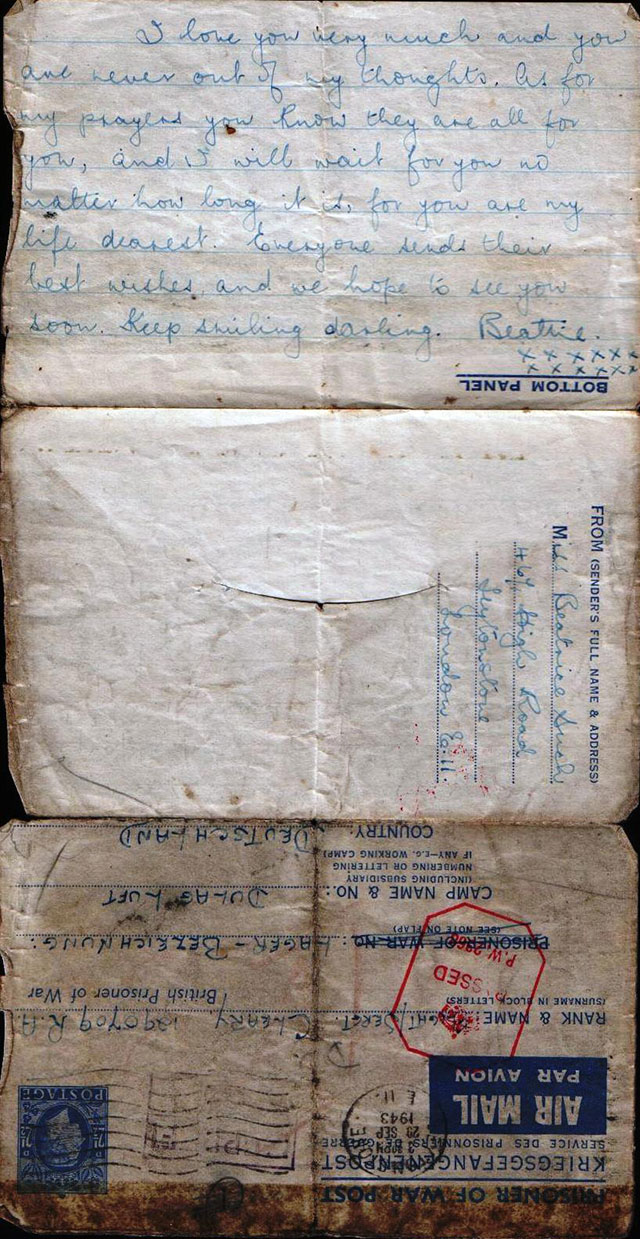 I love you very much and you
are never out of my thoughts. As for
my prayers you know they are all for
you, and I will wait for you no
matter how long it is, for you are my
life dearest. Everyone sends their
best wishes, and we hope to see you
soon. Keep smiling darling. Beatrie.
x x x x x x
x x x x x x
BOTTOM PANEL
FROM (SENDER'S FULL NAME & ADDRESS)
Miss Beatrice
467 High Road
Leytonstone
London E.11.
PRISONER OF WAR POST
KRIEGSGEFANGENENPOST
SERVICE DES PRISONNIERS DE GUERRE
AIR MAIL
PAR AVION
POSTAGE
2½D
28 SEP
1943
E.11.
RANK & NAME: FLIGHT/SERGT. CLEARY 1390709 R.A.
(SURNAME IN BLOCK LETTERS)
British Prisoner of War
PASSED
P.W.
PRISONER OF WAR No: LAGER-BEZEICHNUNG:
(SEE NOTE ON FLAP)
CAMP NAME & No: DULAG LUFT
(INCLUDING SUBSIDIARY
NUMBERING OR LETTERING
IF ANY—E.G. WORKING CAMP)
COUNTRY: DEUTSCHLAND